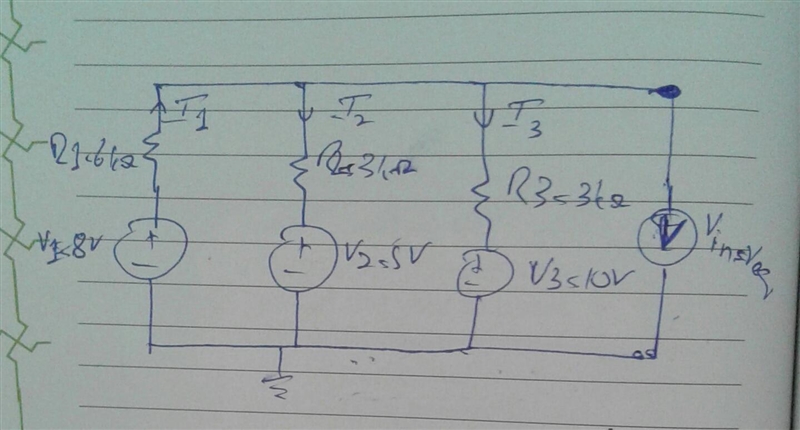 I1
I2
I3
R1=6kΩ
R2=3kΩ
R3=3kΩ
V1=8V
V2=5V
V3=10V
V
Vin=Veq